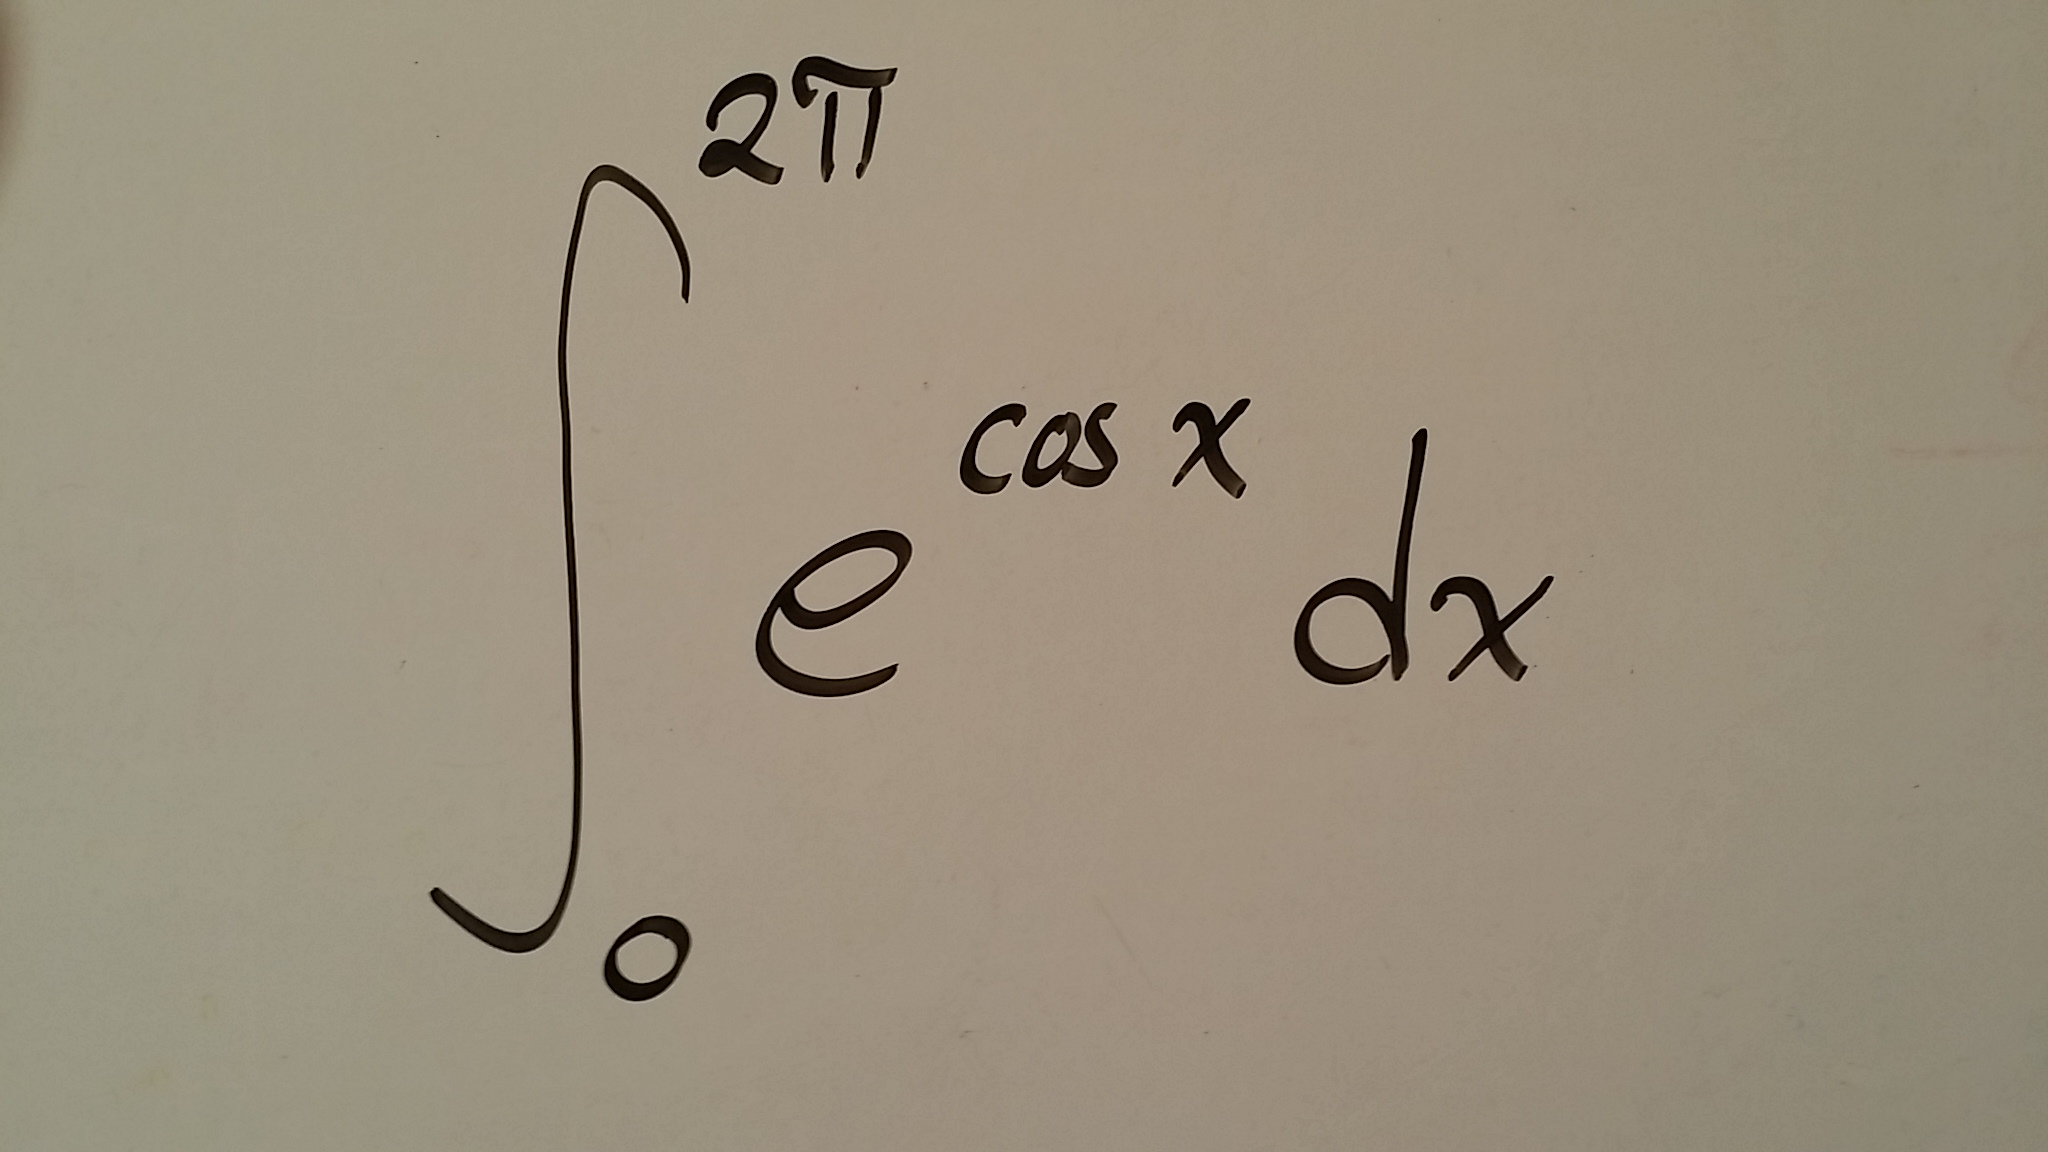 ∫₀^{2π} e^{cos x} dx